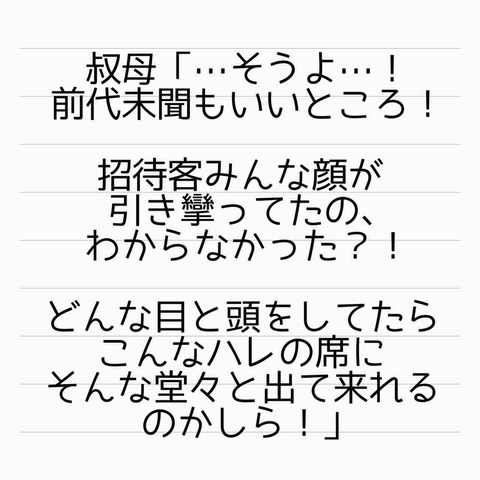 叔母「…そうよ…！
前代未聞もいいところ！
招待客みんな顔が
引き攣ってたの、
わからなかった？！
どんな目と頭をしてたら
こんなハレの席に
そんな堂々と出て来れる
のかしら！」